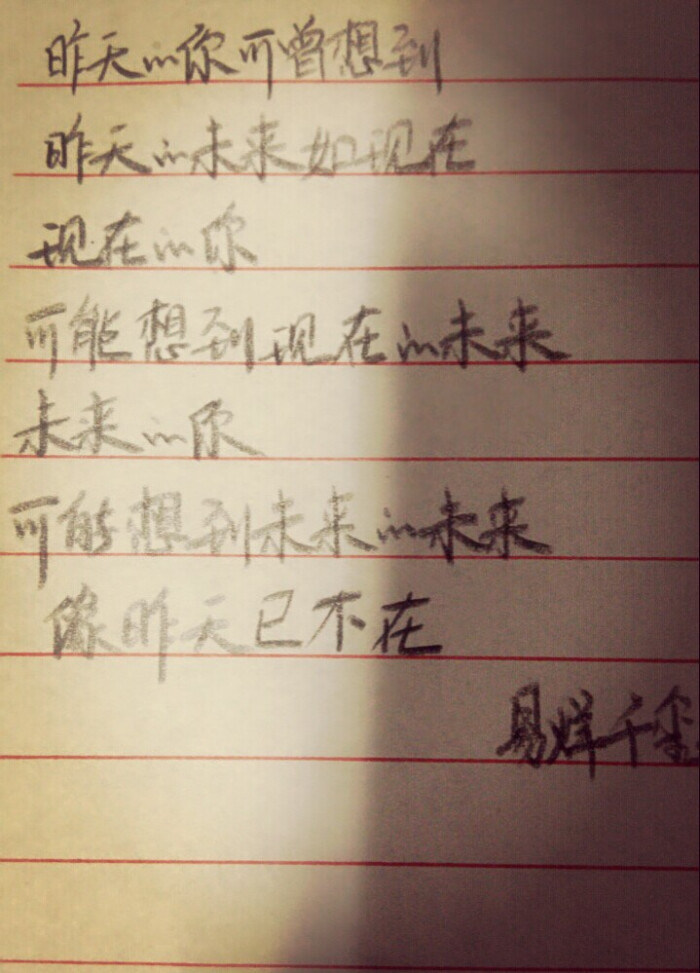 昨天的你可曾想到
昨天的未来如现在
现在的你
可能想到现在的未来
未来的你
可能想到未来的未来
像昨天已不在
易烊千玺